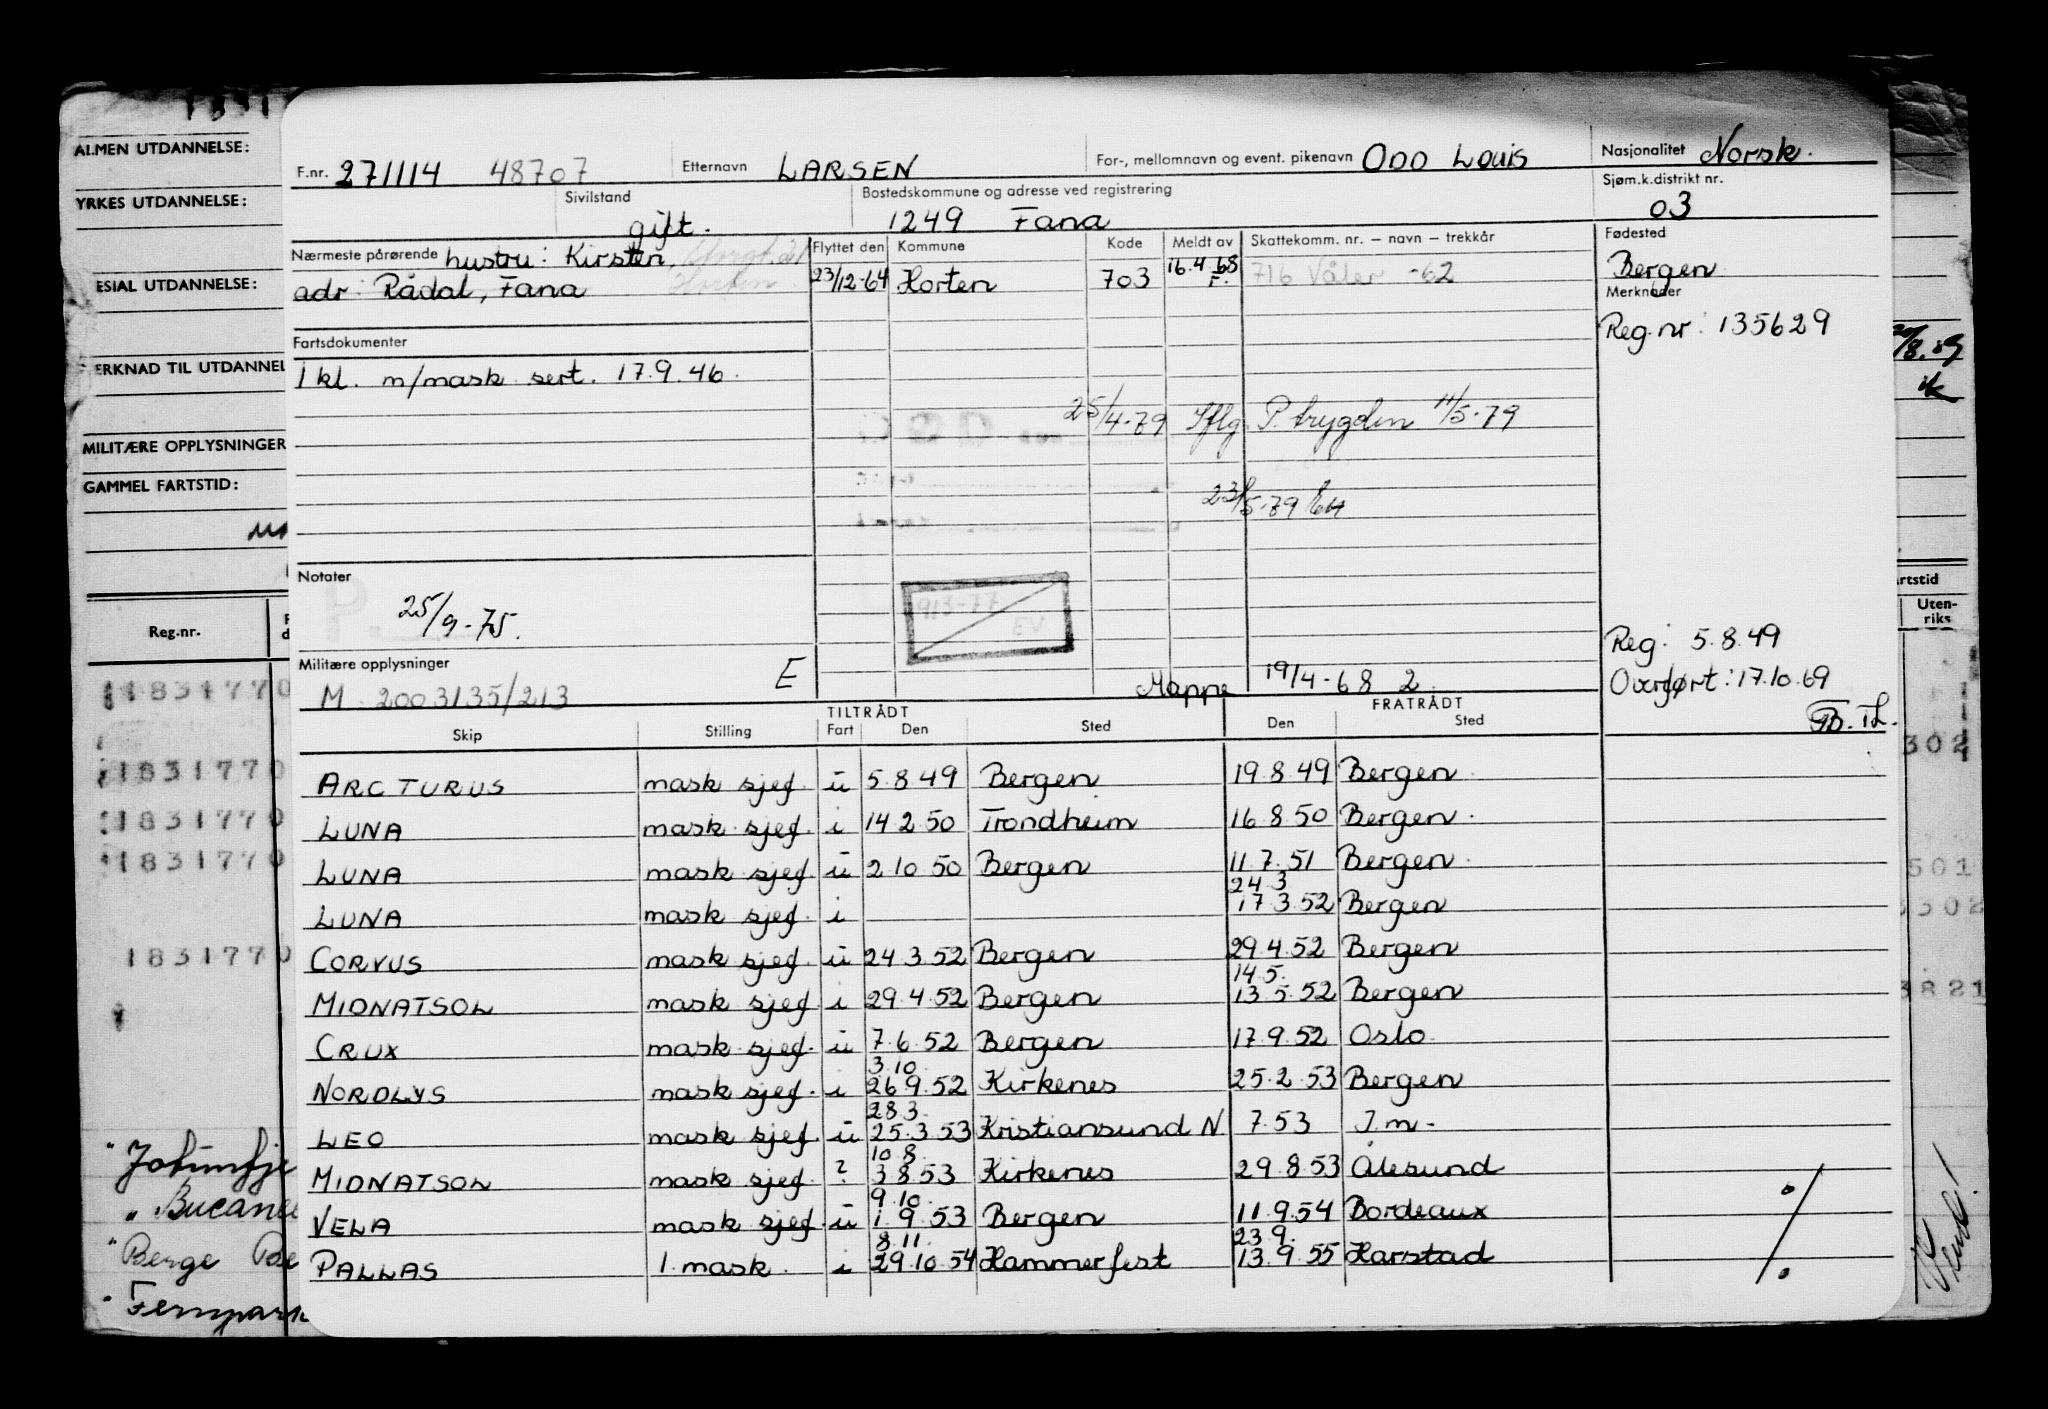 ALMEN UTDANNELSE:
YRKES UTDANNELSE:
ESIAL UTDANNELSE:
ERKNAD TIL UTDANNEL
MILITÆRE OPPLYSNINGER
GAMMEL FARTSTID:
Reg.nr.
1831770
1831770
1831770
1831770
1831770
Berge
F.nr. 271114 48707 Etternavn LARSEN For-, mellomnavn og event. pikenavn ODD LOUIS Nasjonalitet Norsk.
Sivilstand gift. Bostedskommune og adresse ved registrering 1249 Fana Sjøm.k.distrikt nr. 03
Nærmeste pårørende hustru: Kirsten, Flyttet den Kommune Kode Meldt av Skattekomm. nr. – navn – trekkår Fødested
adr: Rådal, Fana Horten 23/12-64 Horten 703 16.4.68 F. 716 Våler -62 Bergen
Merknader
Reg.nr: 135629
Fartsdokumenter
I kl. m/mask sert. 17.9.46.
25/4-79 Iflg. P. trygden 11/5-79
23/5-79
Notater
25/9-75.
913-77
EV
Reg: 5.8.49
Militære opplysninger E
M 2003135/213 Mappe 19/4-68 2. Overført: 17.10.69
TILTRÅDT FRATRÅDT
Skip Stilling Fart Den Sted Den Sted
ARCTURUS mask sjef. u 5.8.49 Bergen 19.8.49 Bergen
LUNA mask sjef. i 14.2.50 Trondheim 16.8.50 Bergen.
LUNA mask sjef. u 2.10.50 Bergen 11.7.51 Bergen.
24.3
LUNA mask sjef. i 17.3.52 Bergen
CORVUS mask sjef. u 24.3.52 Bergen 29.4.52 Bergen
14.5.
MIDNATSOL mask sjef. i 29.4.52 Bergen 13.5.52 Bergen
CRUX mask sjef. u 7.6.52 Bergen 17.9.52 Oslo.
3.10.
NORDLYS mask sjef. i 26.9.52 Kirkenes 25.2.53 Bergen
28.3.
LEO mask sjef. u 25.3.53 Kristiansund N 7.53 I.m-
10.8.
MIDNATSOL mask sjef. ? 3.8.53 Kirkenes 29.8.53 Ålesund
9.10.
VELA mask sjef. u 1.9.53 Bergen 11.9.54 Bordeaux
8.11. 23.9.
PALLAS 1. mask. i 29.10.54 Hammerfest 13.9.55 Harstad
artstid
Uten-
riks
302
501
3302
3821